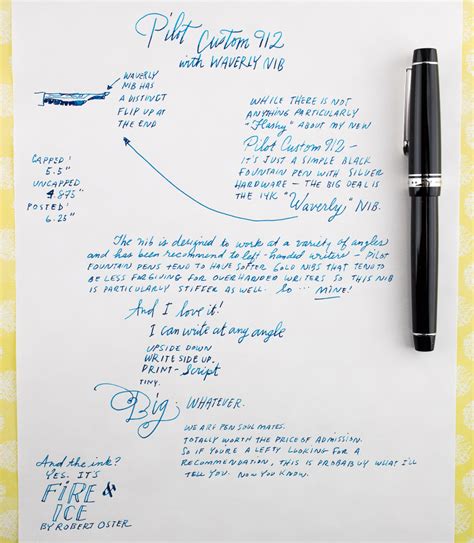 Pilot Custom 912
with WAVERLY NIB
WAVERLY
NIB HAS
A DISTINCT
FLIP UP AT
THE END
WHILE THERE IS NOT
ANYTHING PARTICULARLY
"Flashy" ABOUT MY NEW
Pilot Custom 912 -
IT'S JUST A SIMPLE BLACK
FOUNTAIN PEN WITH SILVER
HARDWARE - THE BIG DEAL IS
THE 14K "Waverly" NIB.
CAPPED:
5.5"
UNCAPPED
4.875"
POSTED:
6.25"
The nib is designed to work at a variety of angles
and has been recommend to left-handed writers - PILOT
FOUNTAIN PENS TEND TO HAVE SOFTER GOLD NIBS THAT TEND TO
BE LESS FORGIVING FOR OVERHANDED WRITERS SO THIS NIB
IS PARTICULARLY STIFFER AS WELL. SO ... MINE!
And I love it!
I can write at any angle
UPSIDE DOWN
WRITE SIDE UP.
PRINT - Script
TINY.
Big. WHATEVER.
WE ARE PEN SOUL MATES.
TOTALLY WORTH THE PRICE OF ADMISSION.
SO IF YOU'RE A LEFTY LOOKING FOR A
RECOMMENDATION, THIS IS PROBABLY WHAT I'LL
TELL YOU. NOW YOU KNOW.
And the ink?
YES. IT'S
FIRE &
ICE
BY ROBERT OSTER